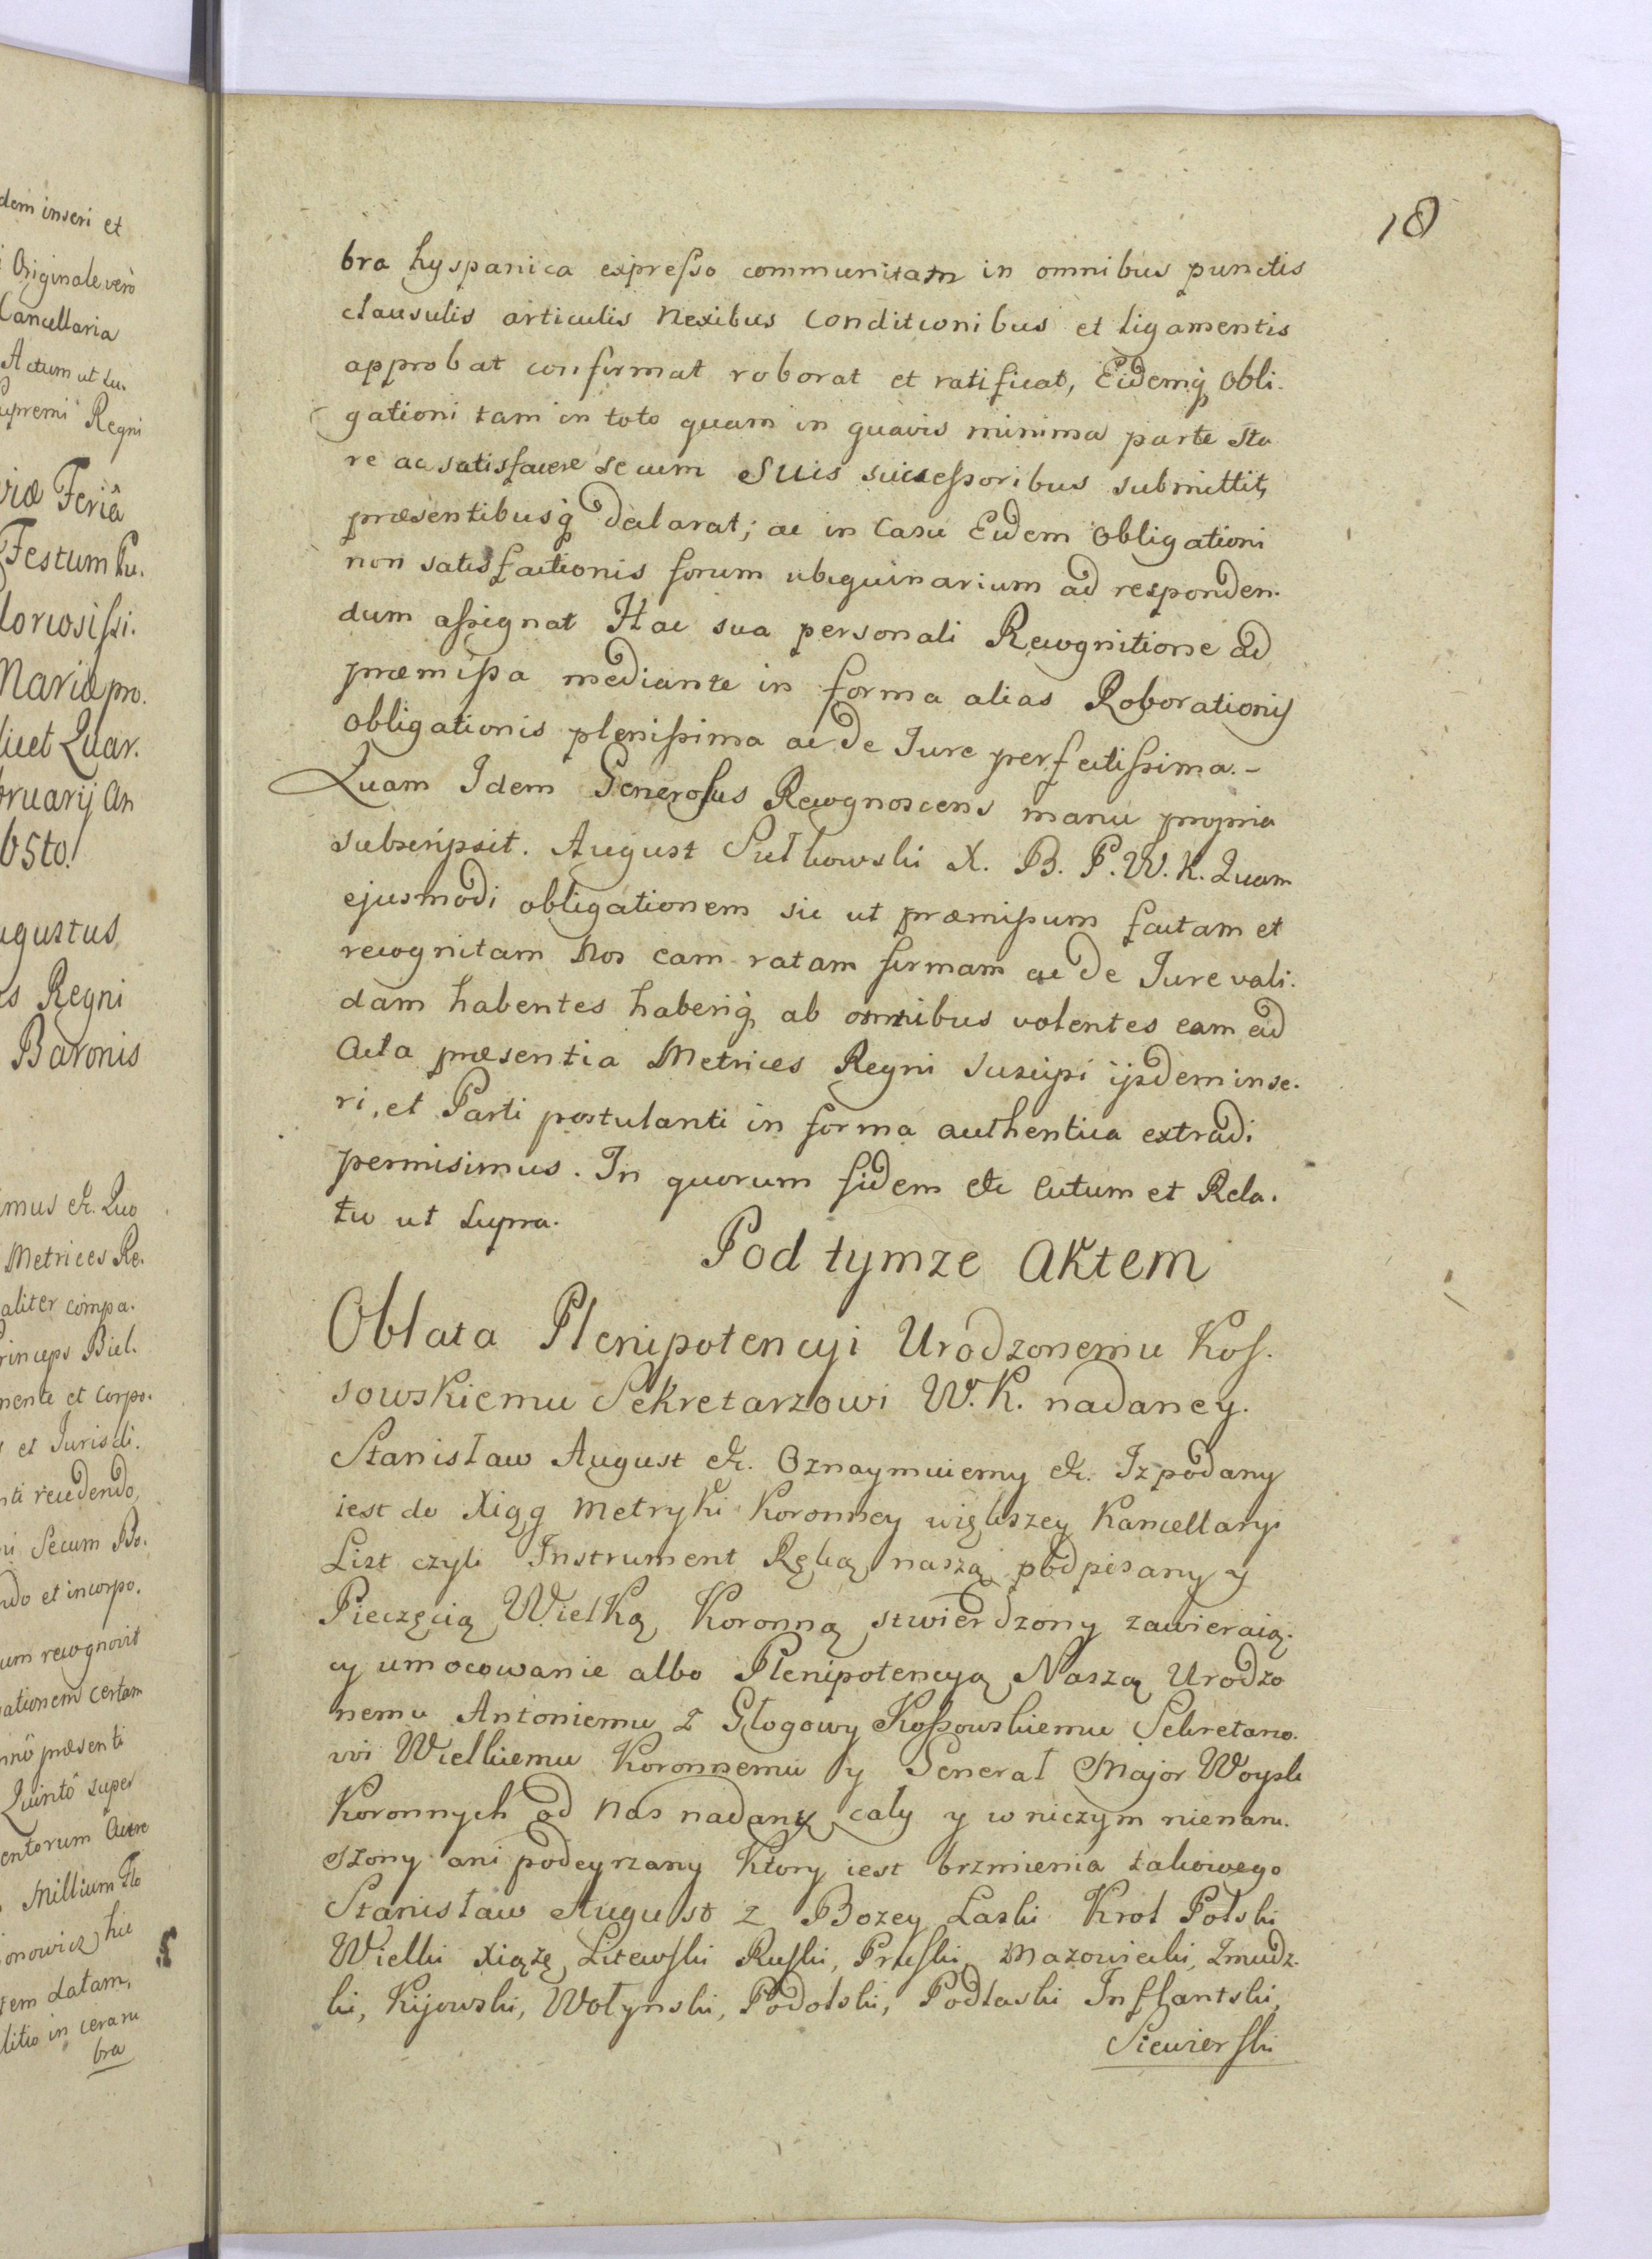 18
bra hyspanica expresso communitam in omnibus punctis
clausulis articulis nexibus conditionibus et ligamentis
approbat confirmat roborat et ratificat, Eidemq obli-
gationi tam in toto quam in quavis minima parte sta
re ac satisfacere se cum suis successoribus submittit,
præsentibusq declarat; ac in casu Eidem obligationi
non satisfactionis forum ubiquinarium ad responden-
dum assignat Hac sua personali Recognitione ad
præmissa mediante in forma alias Roborationis
obligationis plenissima ac de Jure perfectissima.-
Quam Idem Generosus Recognoscens manu propria
subscripsit. August Sułkowski X. B. P. W. K. Quam
ejusmodi obligationem sic ut præmissum factam et
recognitam Nos eam ratam firmam ac de Jure vali-
dam habentes haberiq ab omnibus volentes eam ad
Acta præsentia Metrices Regni suscipi ijsdem inse-
ri, et Parti postulanti in forma authentica extradi
permisimus. In quorum fidem etc Actum et Rela-
tio ut supra.
Pod tymze Aktem
Oblata Plenipotencyi Urodzonemu Kos-
sowskiemu Sekretarzowi W. K. nadaney.
Stanisław August etc. Oznaymuiemy etc. Iz podany
iest do Xiąg Metryki Koronney większey Kancellaryi
List czyli Instrument Ręką naszą podpisany y
Pieczęcią Wielką Koronną stwierdzony zawieraią-
cy umocowanie albo Plenipotencyą Naszą Urodzo
nemu Antoniemu z Głogowy Kossowskiemu Sekretarzo-
wi Wielkiemu Koronnemu y Generał Major Woysk
Koronnych od Nas nadany cały y w niczym nienaru-
szony ani podeyrzany ktory iest brzmienia takowego
Stanisław August z Bozey Łaski Krol Polski
Wielki Xiąże Litewski Ruski, Pruski, Mazowiecki, Zmudz-
ki, Kijowski, Wołynski, Podolski, Podlaski Inflantski,
Siewierski
dem inseri et
Originale verò
Cancellaria
Actum ut su-
upremi Regni
Feriâ
Festum Pu-
loriosissi-
Mariæ pro-
licet Quar-
bruarij An
65to.
ugustus
Regni
Baronis
imus etc. Quo
Metrices Re-
aliter compa-
rinceps Biel-
mente et corpo-
et Jurisdi-
recedendo,
Secum Bo-
do et incorpo-
um recognovit
ationem certam
præsenti
Quintô super
entorum
Millium Flo
onowicz hic
tem datam,
in ceraru
bra